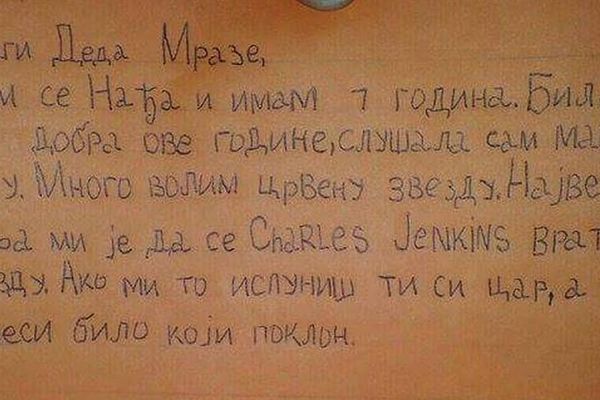 ги Деда Мразе,
м се Нађа и имам 7 година. Бил
добра ове године, слушала сам ма
у. Много волим црвену звезду. Најве
ра ми је да се Charles Jenkins врат
зду. Ако ми то испуниш ти си цар, а
еси било који поклон.